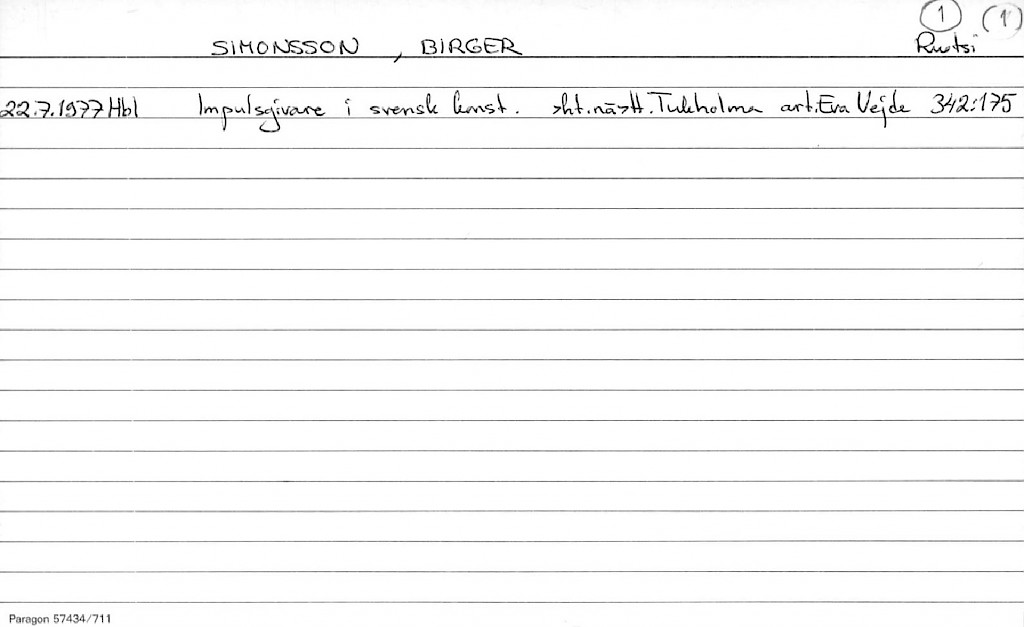 1 (1)
SIMONSSON, BIRGER Ruotsi
22.7.1977 Hbl Impulsgivare i svensk konst. Tukholma art. Eva Vejde 342:175
Paragon 57434/711